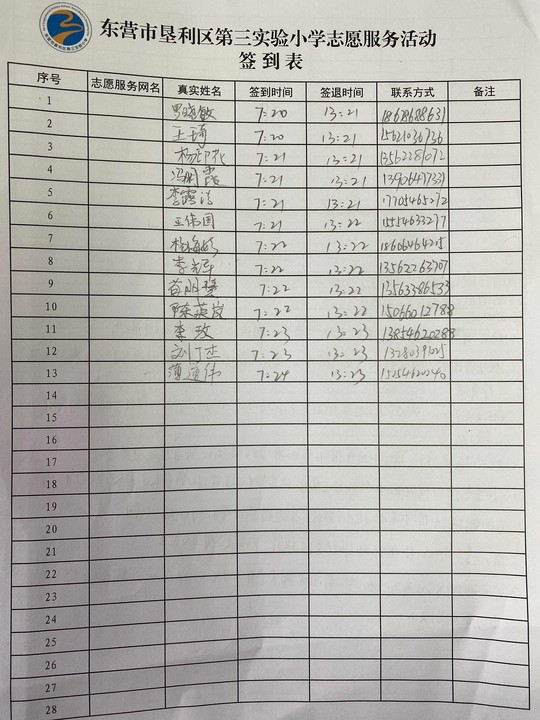 东营市垦利区第三实验小学志愿服务活动
签到表
序号 志愿服务网名 真实姓名 签到时间 签退时间 联系方式 备注
1 罗晓敏 7:20 13:21 18678688631
2 王琦 7:20 13:21 15621036736
3 7:21 13:21 13562281072
4 7:21 13:21 13906497331
5 李露洁 7:21 13:21 17705465272
6 王伟国 7:21 13:22 15554633277
7 7:22 13:22 18606464215
8 李光军 7:22 13:22 13562263707
9 苗丽慧 7:22 13:22 13563386533
10 陈英岚 7:22 13:22 15066012788
11 李玫 7:23 13:23 13854620288
12 刘丁杰 7:23 13:23 13280391025
13 薄道伟 7:24 13:23 15254620240
14
15
16
17
18
19
20
21
22
23
24
25
26
27
28